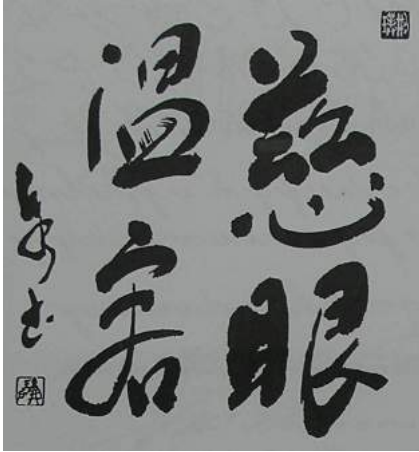 慈眼
温容